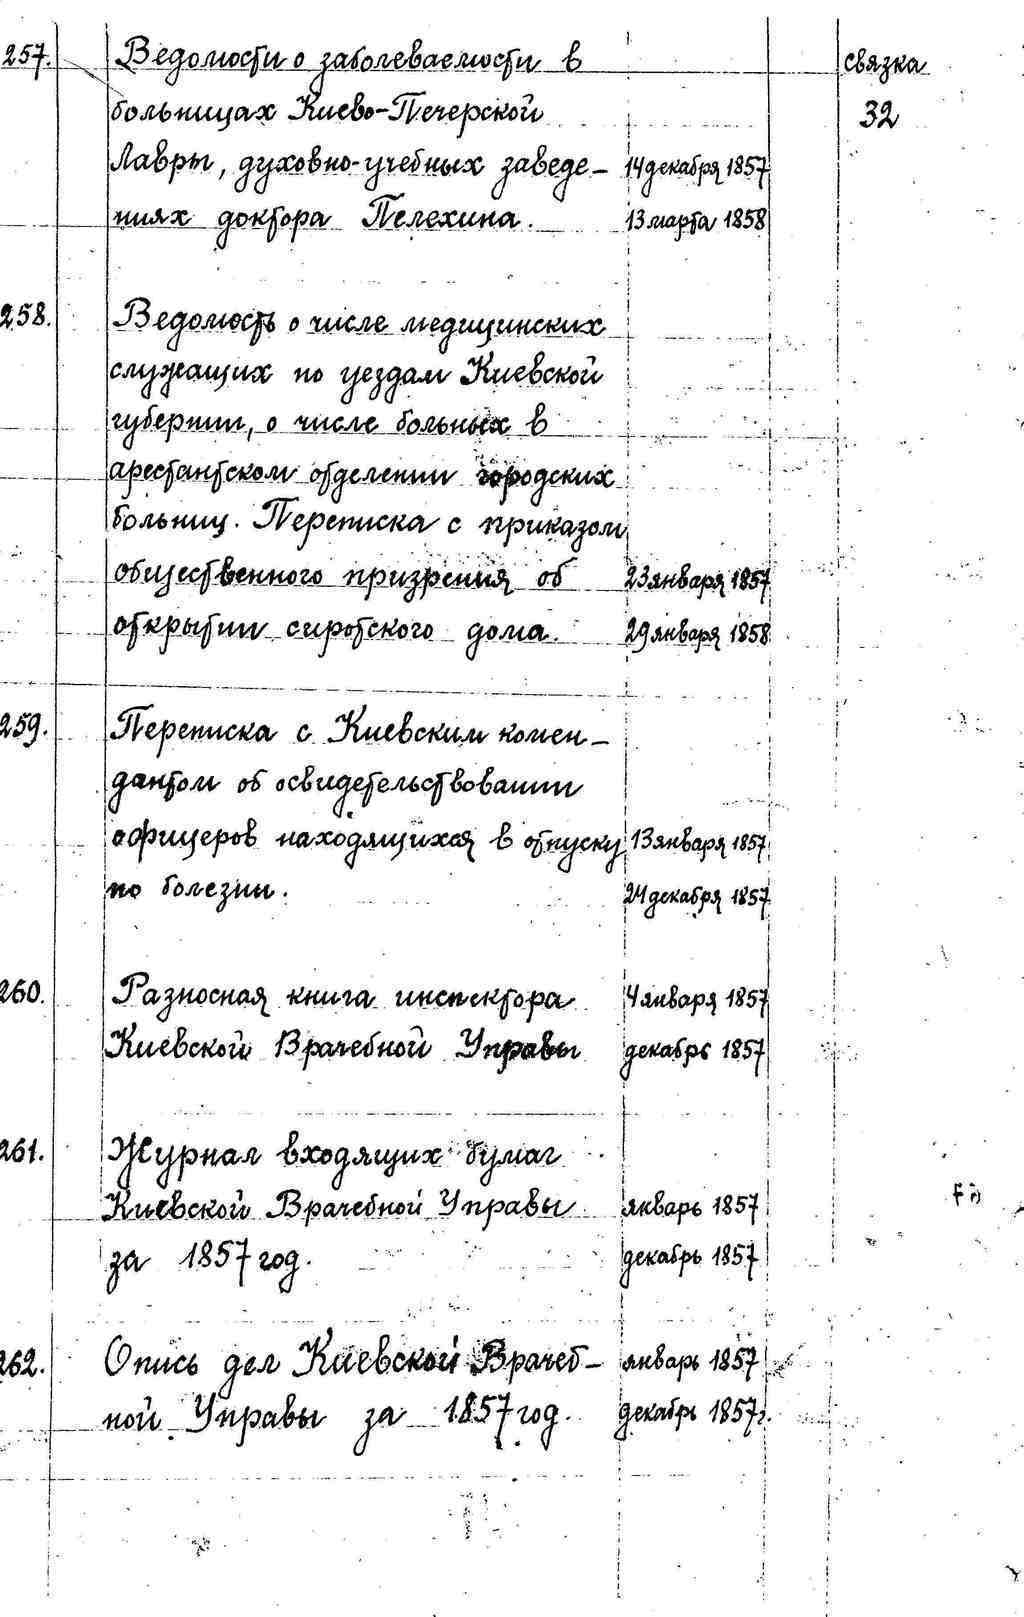 257. Ведомости о заболеваемости в связка
больницах Киево-Печерской 32
Лавры, духовно-учебных заведе- 14 декабря 1857
ниях доктора Пелехина. 13 марта 1858
258. Ведомость о числе медицинских
служащих по уездам Киевской
губернии, о числе больных в
арестантском отделении городских
больниц. Переписка с приказом
общественного призрения об 23 января 1857
открытии сиротского дома. 29 января 1858
259. Переписка с Киевским комен-
дантом об освидетельствовании
офицеров находящихся в отпуску 13 января 1857
по болезни. 24 декабря 1857
260. Разносная книга инспектора 4 января 1857
Киевской Врачебной Управы декабрь 1857
261. Журнал входящих бумаг
Киевской Врачебной Управы январь 1857
за 1857 год. декабрь 1857
262. Опись дел Киевской Врачеб- январь 1857
ной Управы за 1857 год. декабрь 1857г.